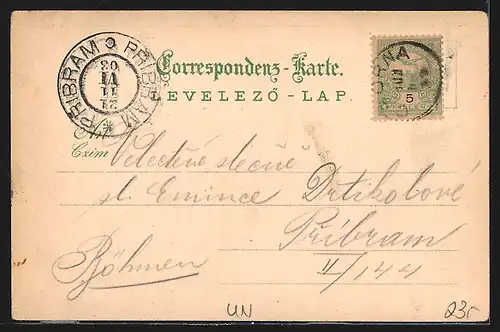 PŘIBRAM PŘIBRAM
Correspondenz-Karte.
LEVELEZŐ-LAP.
5
Czim
Velectěné slečně
sl. Emince Drtikolové
Příbram
II/144
Böhmen
UN
23r